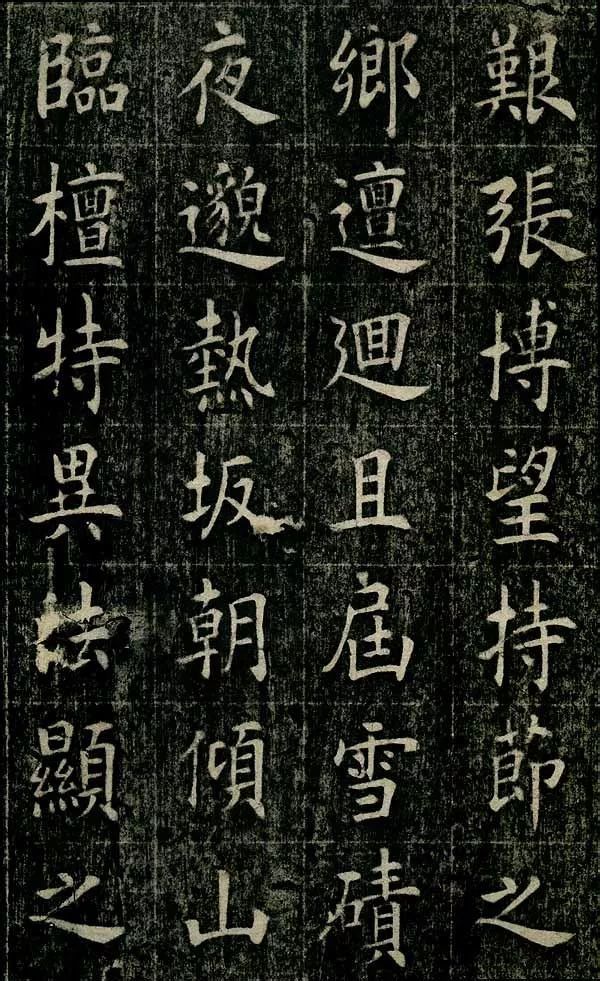 艱張博望持節之
鄉邅迴且屆雪磧
夜邈熱坂朝傾山
臨檀特異法顯之